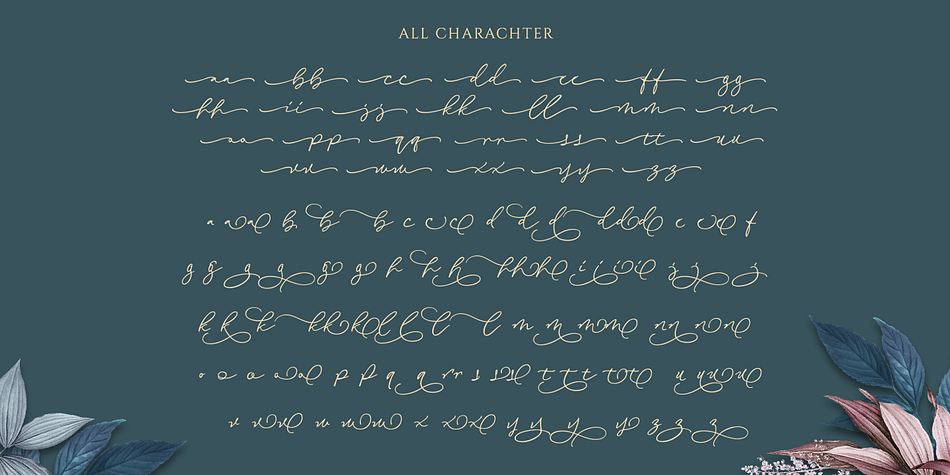 ALL CHARACHTER
aa bb cc dd ee ff gg
hh ii jj kk ll mm nn
oo pp qq rr ss tt uu
vv ww xx yy zz
a a a a b b b c c c d d d d d d e e e f
g g g g g g h h h h h h i i i i j j j
k k k k k k l l l l m m m m n n n n
o o o o o p p q q r r s s s t t t t t u u u u
v v v w w w x x x y y y y z z z